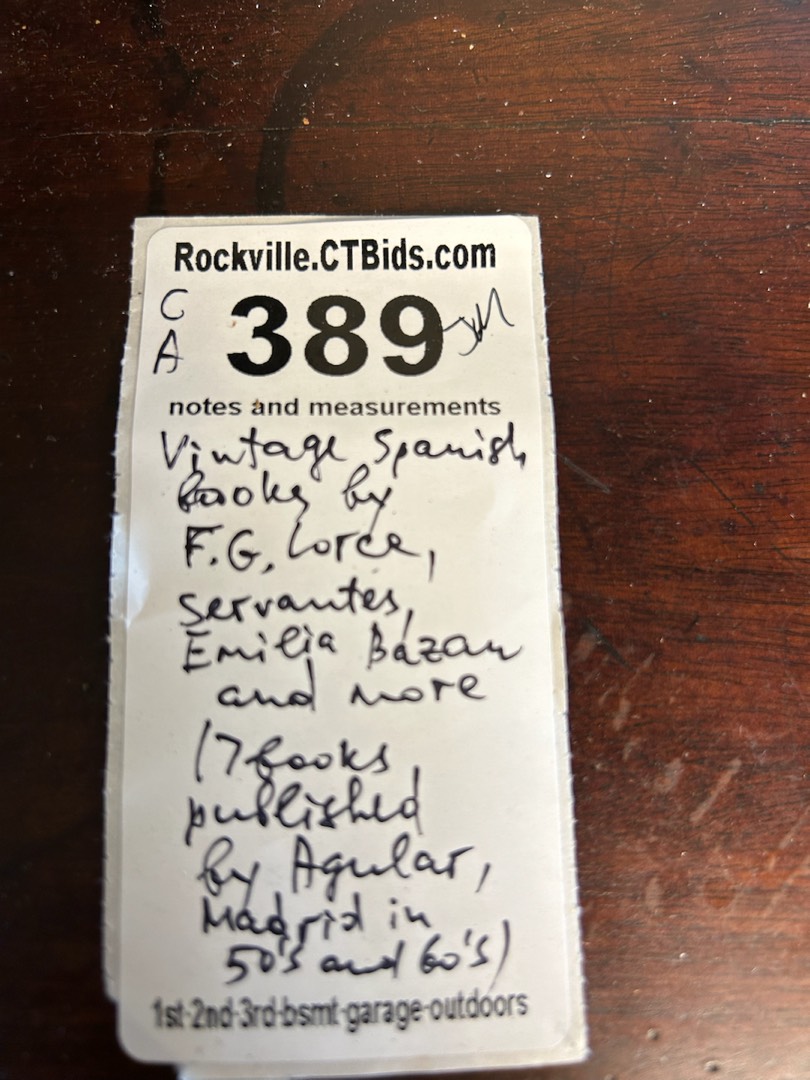 Rockville.CTBids.com
C
A
389
notes and measurements
Vintage Spanish
books by
F.G. Lorca,
Servantes,
Emilia Bázan
and more
(7 books
published
by Agular,
Madrid in
50's and 60's)
1st-2nd-3rd-bsmt-garage-outdoors